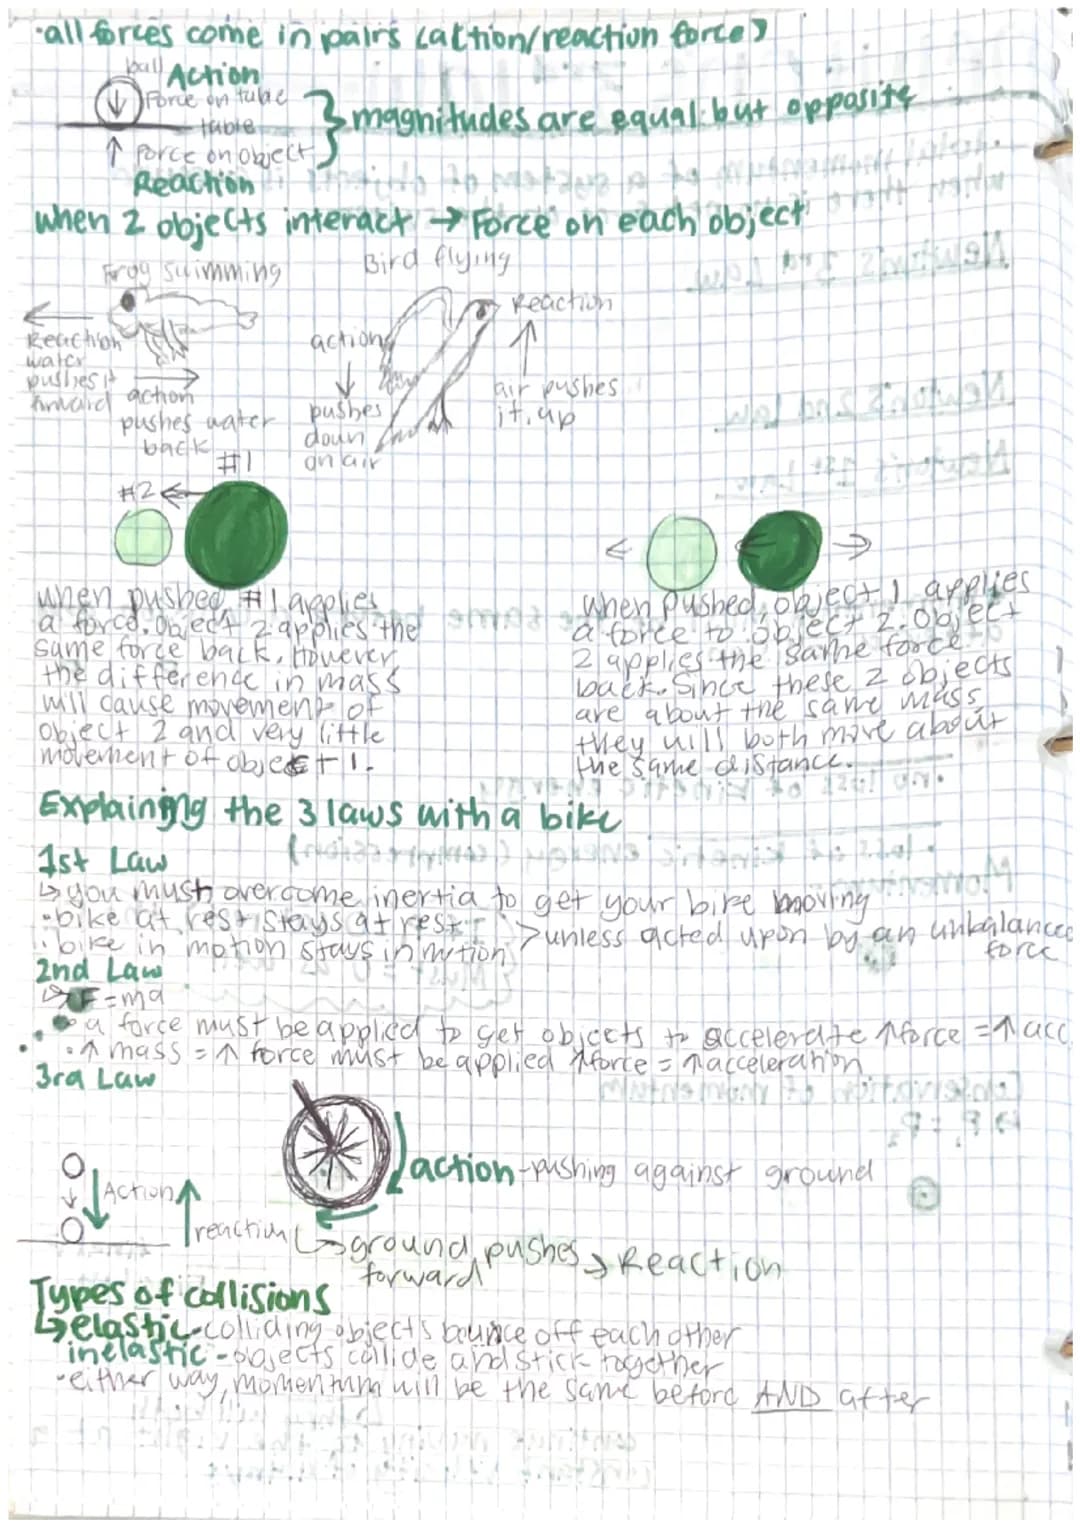 ·all forces come in pairs (action/reaction force)
ball Action
Force on tube
table
Force on object
Reaction
magnitudes are equal but opposite
when 2 objects interact → Force on each object
Frog swimming
Reaction
water
pushes it
forward
action
pushes water
back
Bird flying
action
pushes
down
on air
Reaction
air pushes
it up
#1
#2
when pushed, #1 applies
a force. Object 2 applies the
same force back. However
the difference in mass
will cause movement of
object 2 and very little
movement of object 1.
when pushed, object 1 applies
a force to object 2. Object
2 applies the same force
back. Since these 2 objects
are about the same mass,
they will both move about
the same distance.
Explaining the 3 laws with a bike
1st Law
↳ you must overcome inertia to get your bike moving
·bike at rest stays at rest
·bike in motion stays in motion
> unless acted upon by an unbalanced
force
2nd Law
↳ F=ma
• a force must be applied to get objects to accelerate ↑force = ↑acc
·↑ mass = ↑ force must be applied ↑force = ↑acceleration
3rd Law
Action
reaction
action-pushing against ground
↳ground pushes → Reaction
forward
Types of collisions
↳elastic-colliding objects bounce off each other
inelastic - objects collide and stick together
-either way, momentum will be the same before AND after